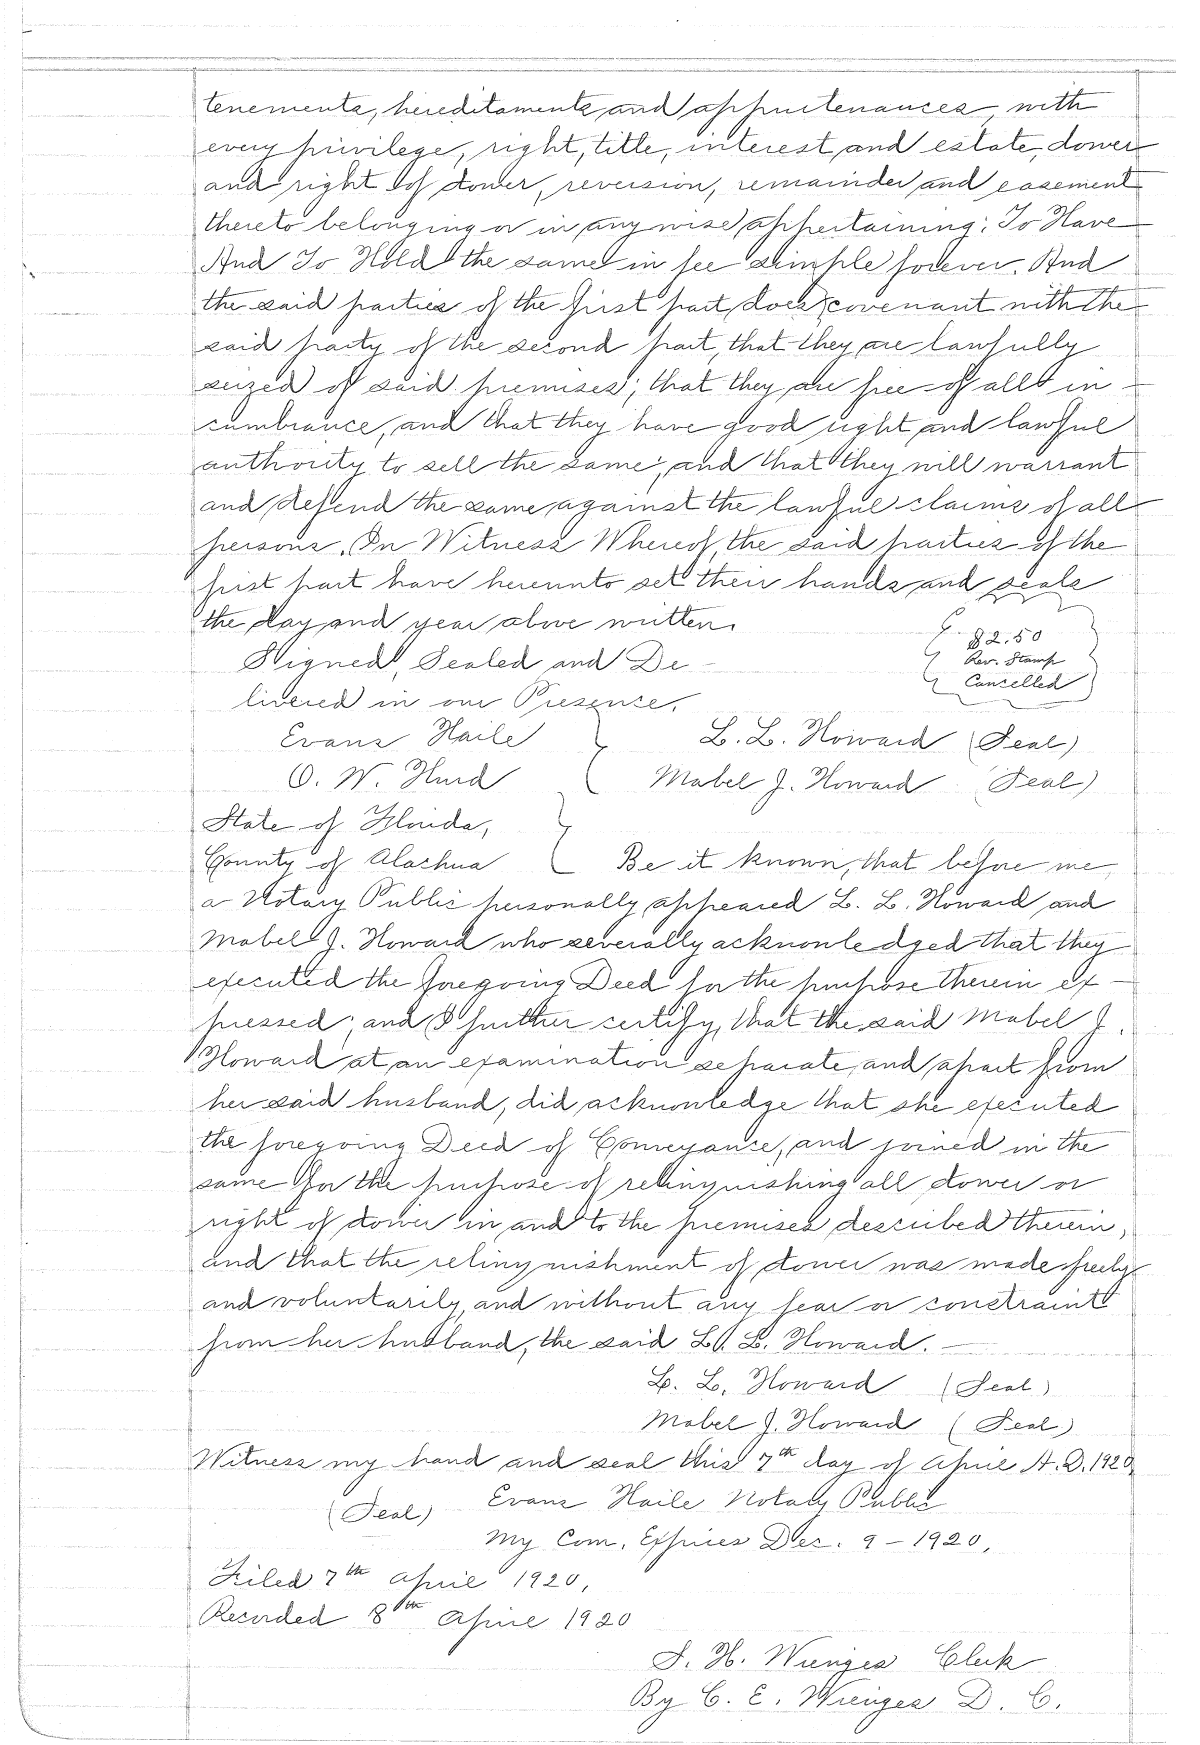 tenements, hereditaments and appurtenances, with
every privilege, right, title, interest and estate, dower
and right of dower, reversion, remainder and easement
thereto belonging or in any wise appertaining: To Have
And To Hold the same in fee simple forever. And
the said parties of the first part does covenant with the
said party of the second part, that they are lawfully
seized of said premises; that they are free of all in-
cumbrance, and that they have good right and lawful
authority to sell the same; and that they will warrant
and defend the same against the lawful claims of all
persons. In Witness Whereof, the said parties of the
first part have hereunto set their hands and seals
the day and year above written.
$2.50
Rev. Stamp
Cancelled
Signed, Sealed and De-
livered in our Presence.
Evans Haile L. L. Howard (Seal)
O. W. Hurd Mabel J. Howard (Seal)
State of Florida,
County of Alachua Be it known, that before me,
a Notary Public personally appeared L. L. Howard and
Mabel J. Howard who severally acknowledged that they
executed the foregoing Deed for the purpose therein ex-
pressed; and I further certify, that the said Mabel J.
Howard at an examination separate and apart from
her said husband, did acknowledge that she executed
the foregoing Deed of Conveyance, and joined in the
same for the purpose of relinquishing all dower or
right of dower in and to the premises described therein,
and that the relinquishment of dower was made freely
and voluntarily and without any fear or constraint
from her husband, the said L. L. Howard.
L. L. Howard (Seal)
Mabel J. Howard (Seal)
Witness my hand and seal this 7th day of April A.D. 1920
(Seal) Evans Haile Notary Public
My Com. Expires Dec. 9-1920,
Filed 7th April 1920,
Recorded 8th April 1920
S. H. Wienges Clerk
By C. E. Wienges D. C.